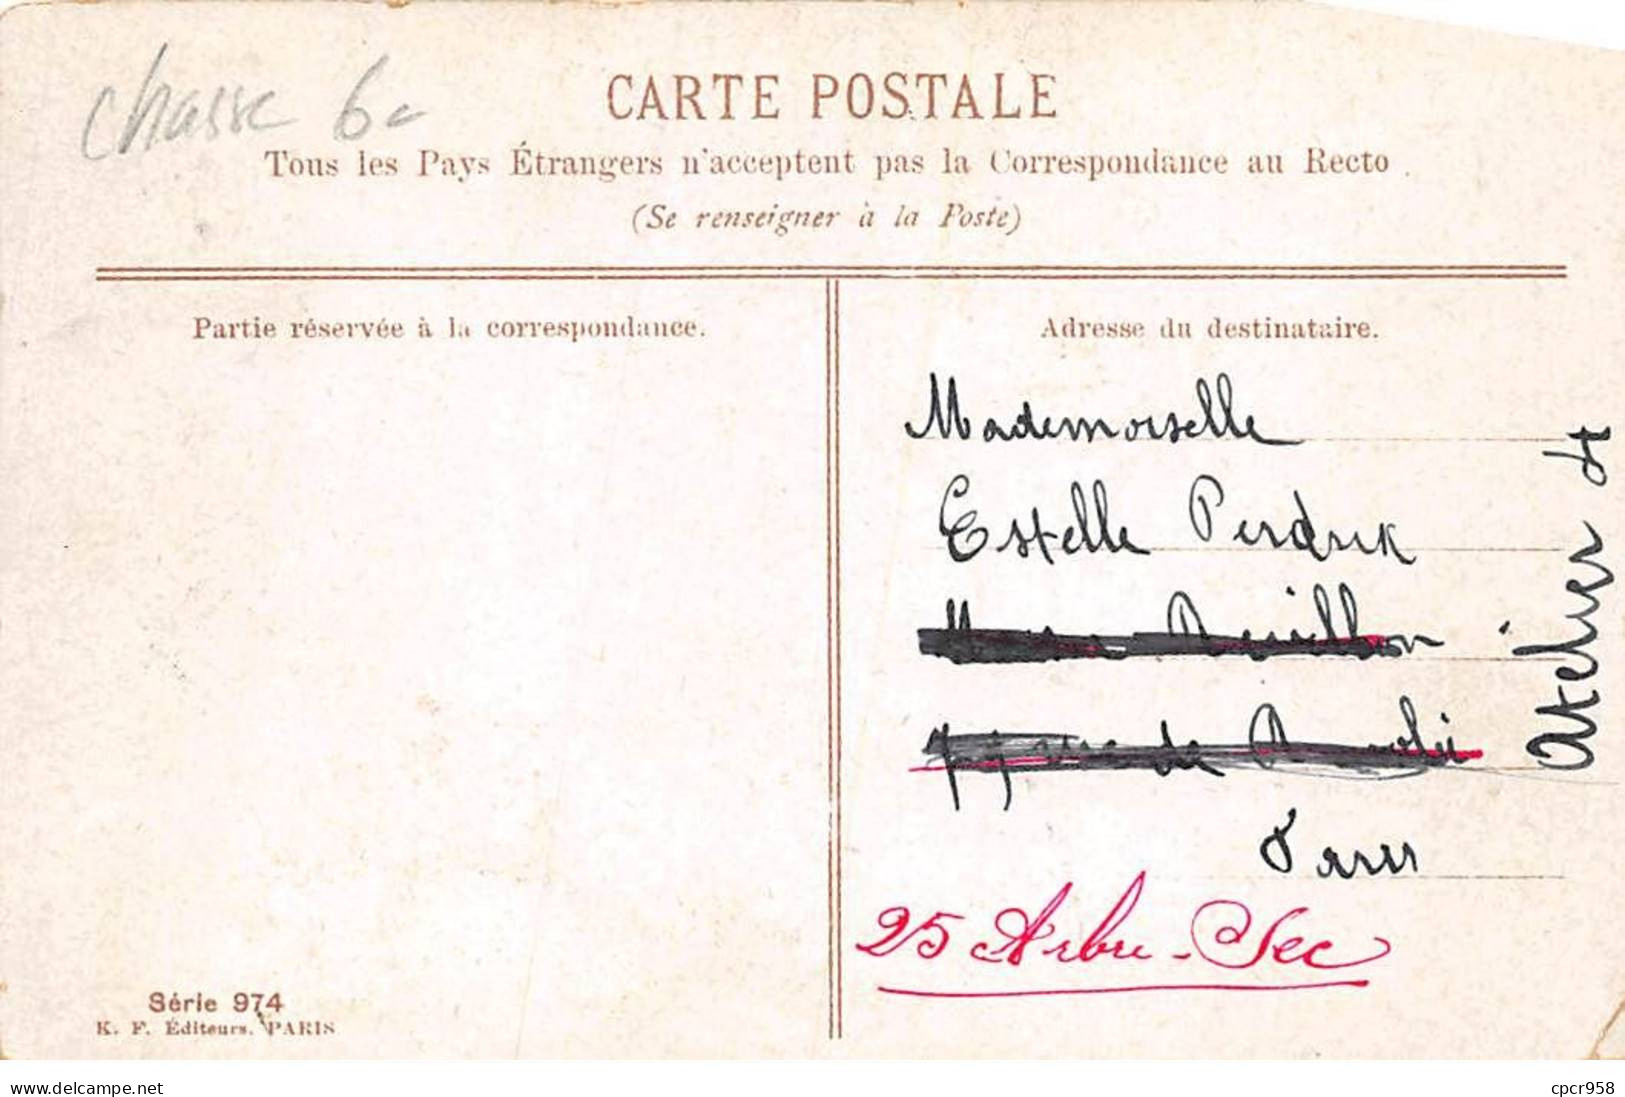 chasse 6c
CARTE POSTALE
Tous les Pays Étrangers n'acceptent pas la Correspondance au Recto
(Se renseigner à la Poste)
Partie réservée à la correspondance.
Adresse du destinataire.
Mademoiselle
Estelle Perdrix
Paris
25 Arbre-Sec
Atelier
Série 974
K. F. Éditeurs. PARIS
www.delcampe.net
cpcr958